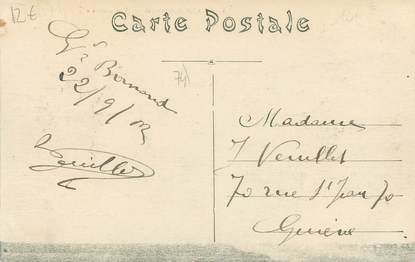 12 €
Carte Postale
Gd Bornand
22/9/12
74
Madame
J Veuillet
70 rue St Jean 70
Genève